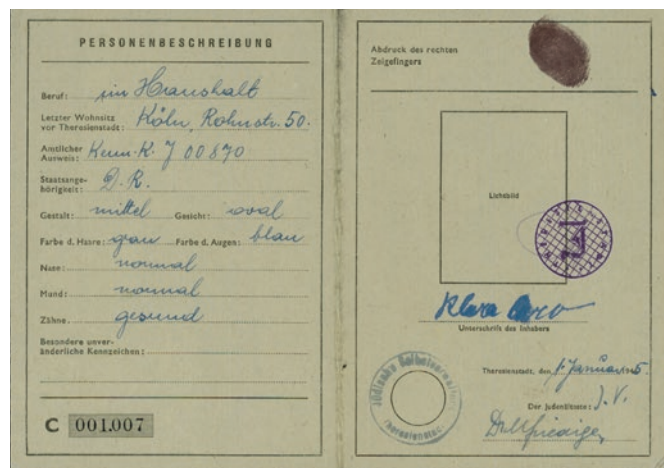 PERSONENBESCHREIBUNG
Beruf: im Haushalt
Letzter Wohnsitz
vor Theresienstadt: Köln, Rohnstr. 50.
Amtlicher
Ausweis: Kenn-K. J 00870
Staatsange-
hörigkeit: D. R.
Gestalt: mittel Gesicht: oval
Farbe d. Haare: grau Farbe d. Augen: blau
Nase: normal
Mund: normal
Zähne: gesund
Besondere unver-
änderliche Kennzeichen:
C 001.007
Abdruck des rechten
Zeigefingers
Lichtbild
Klara Caro
Unterschrift des Inhabers
Jüdische Selbstverwaltung
Theresienstadt
Theresienstadt, den 1. Januar 5.
Der Judenälteste: J. V.